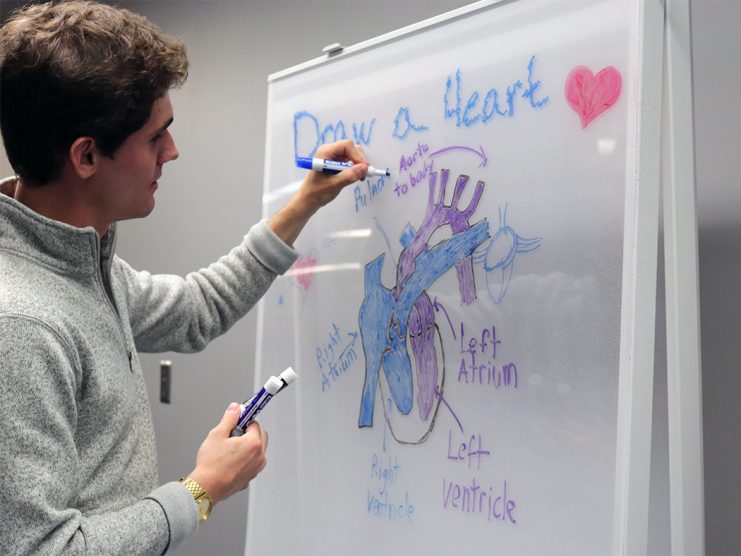 Draw a Heart
Aorta
to body
Right
Atrium
Left
Atrium
Left
Ventricle
Right
Ventricle